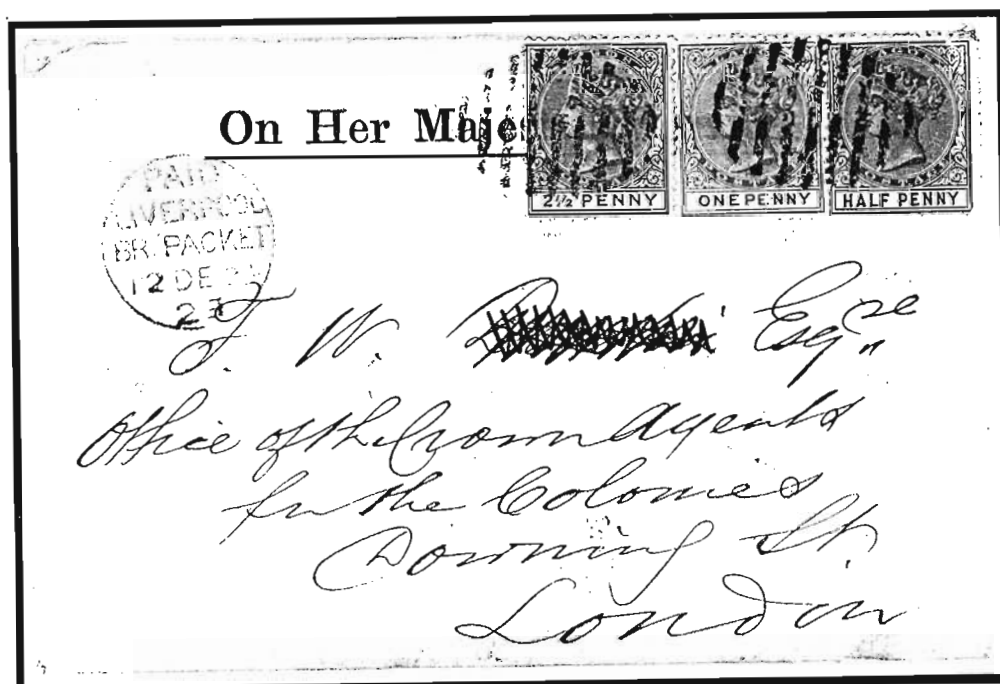 On Her Majes
2½ PENNY
ONE PENNY
HALF PENNY
PAID
LIVERPOOL
BR. PACKET
12 DE
23
J. W. Esqre
Office of the Crown Agents
for the Colonies
Downing St.
London